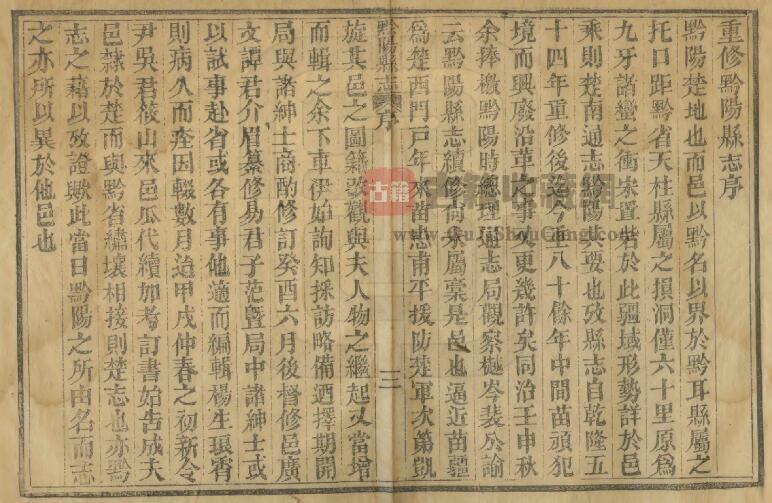 重修黔陽縣志序
黔陽楚地也而邑以黔名以界於黔耳縣屬之
托口距黔省天柱縣屬之損洞僅六十里原為
九牙諸蠻之衝宋置砦於此疆域形勢詳於邑
乘則楚南通志黔陽其要也攷縣志自乾隆五
十四年重修後迄今垂八十餘年中間苗頑犯
境而興廢沿革之事又更幾許矣同治壬申秋
余捧檄黔陽時總理通志局觀察樾岑裴公諭
云黔陽縣志續修尚未屬稾是邑也逼近苗疆
為楚西門戶年來苗患甫平援防楚軍次第凱
黔陽縣志 序 三
旋其邑之圖籍要觀與夫人物之繼起又當增
而輯之余下車伊始詢知採訪略備迺擇期開
局與諸紳士商酌修訂癸酉六月後督修邑廣
文譚君介眉纂修易君子范暨局中諸紳士或
以試事赴省或各有事他適而編輯楊生琅霄
則病久而痊因輟數月迨甲戌仲春之初新令
尹吳君筱山來邑瓜代續加考訂書始告成夫
邑隸於楚而與黔省繡壤相接則楚志也亦黔
志之藉以攷證歟此當日黔陽之所由名而志
之亦所以異於他邑也
古籍
www.GuJiShouCang.com